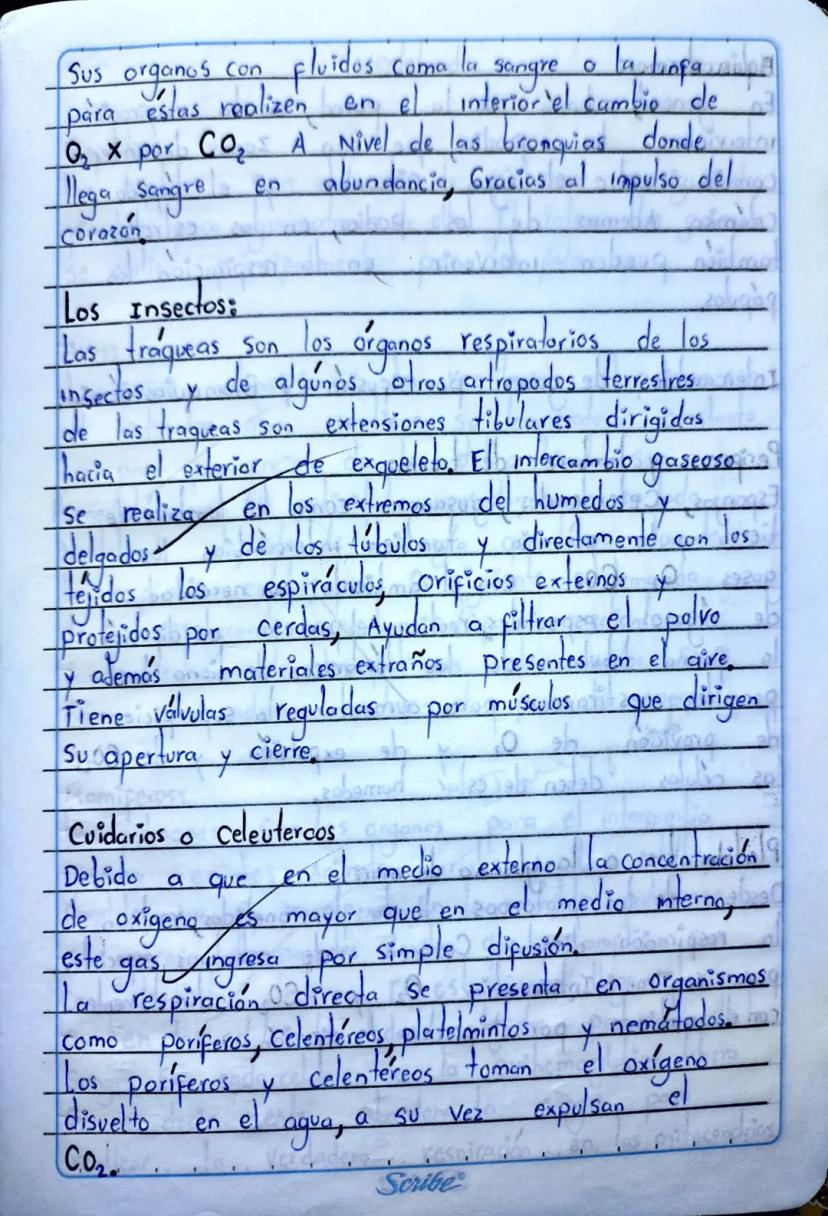 Sus organos con fluidos coma la sangre o la linfa
para éstas realizen en el interior el cambio de
O₂ x por CO₂ A Nivel de las bronquias donde
llega sangre en abundancia, Gracias al impulso del
corazón.
Los Insectos:
Las tráqueas son los órganos respiratorios de los
insectos y de algúnos otros artropodos terrestres
de las traqueas son extensiones tibulares dirigidas
hacia el exterior de exqueleto. El intercambio gaseoso
se realiza en los extremos del humedos y
delgados y de los túbulos y directamente con los
téjidos los espiráculos, orificios externos y
protejidos por cerdas, Ayudan a filtrar el polvo
y además materiales extraños presentes en el aire.
Tiene válvulas reguladas por músculos que dirigen
su apertura y cierre.
Cuidarios o Celeutercos
Debido a que en el medio externo la concentración
de oxigeno es mayor que en el medio interno,
este gas, ingresa por simple difusión.
La respiración directa se presenta en organismos
como poríferos, Celentéreos, platelmintos y nemátodos.
Los poríferos y celentéreos toman el oxígeno
disuelto en el agua, a su vez expulsan el
CO₂.
Scribe